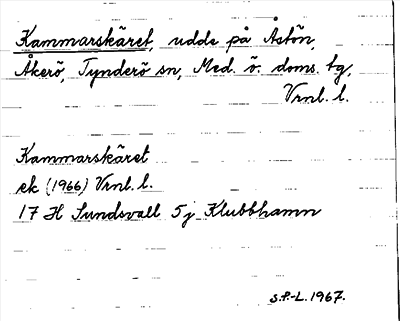 Kammarskäret, udde på Åstön,
Åkerö, Tynderö sn, Med. ö. doms. tg,
Vrnl. l.
Kammarskäret
ek (1966) Vrnl. l.
17 H Sundsvall 5j Klubbhamn
S.F.-L. 1967.